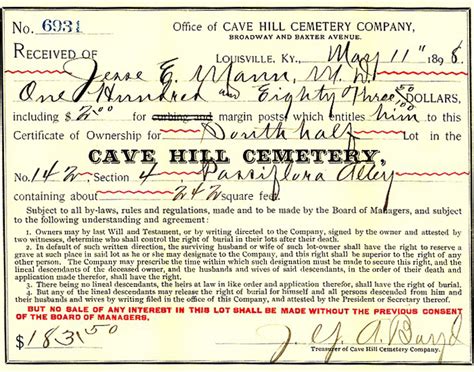 No. 6931 Office of CAVE HILL CEMETERY COMPANY,
BROADWAY AND BAXTER AVENUE.
LOUISVILLE, KY., May 11" 1898
RECEIVED OF Jesse E. Mann, M.D.
One Hundred and Eighty Three 50/100 DOLLARS,
including $2.00 for curbing and margin posts which entitles him to this
Certificate of Ownership for South half Lot in the
CAVE HILL CEMETERY,
No. 142, Section 4 Passiflora Alley
containing about 242 square feet.
Subject to all by-laws, rules and regulations, made and to be made by the Board of Managers, and subject
to the following understanding and agreement:
1. Owners may by last Will and Testament, or by writing directed to the Company, signed by the owner and attested by
two witnesses, determine who shall control the right of burial in their lots after their death.
2. In default of such written direction, the surviving husband or wife of such lot-owner shall have the right to reserve a
grave at such place in said lot as he or she may designate to the Company, and this right shall be superior to the right of any
other person. The Company may prescribe the time within which such designation must be made to secure such right, and the
lineal descendants of the deceased owner, and the husbands and wives of said descendants, in the order of their death and
application made therefor, shall have the right of interment.
3. There being no lineal descendants, the heirs at law in like order shall have the right of interment.
4. Any one may release the right of burial for himself and all persons descended from him and
their husbands and wives by writing filed in the office of this Company, and attested by the President or Secretary thereof.
BUT NO SALE OF ANY INTEREST IN THIS LOT SHALL BE MADE WITHOUT THE PREVIOUS CONSENT
OF THE BOARD OF MANAGERS.
$183.50 J. G. A. Boyd
Treasurer of Cave Hill Cemetery Company.